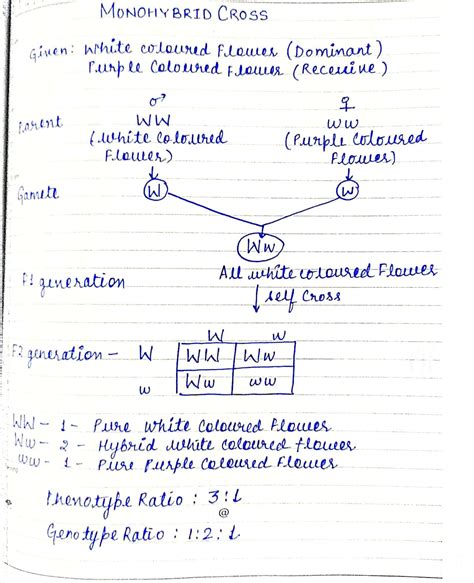 MONOHYBRID CROSS
Given: White coloured Flower (Dominant)
Purple Coloured Flower (Recessive)
♂ ♀
Parent WW ww
(White Coloured Flower) (Purple Coloured Flower)
Gamete W w
Ww
All white coloured Flower
F1 generation
self Cross
W w
F2 generation - W WW Ww
w Ww ww
WW - 1 - Pure White Coloured Flower
Ww - 2 - Hybrid White coloured flower
ww - 1 - Pure Purple Coloured Flower
Phenotype Ratio : 3:1
@
Genotype Ratio : 1:2:1